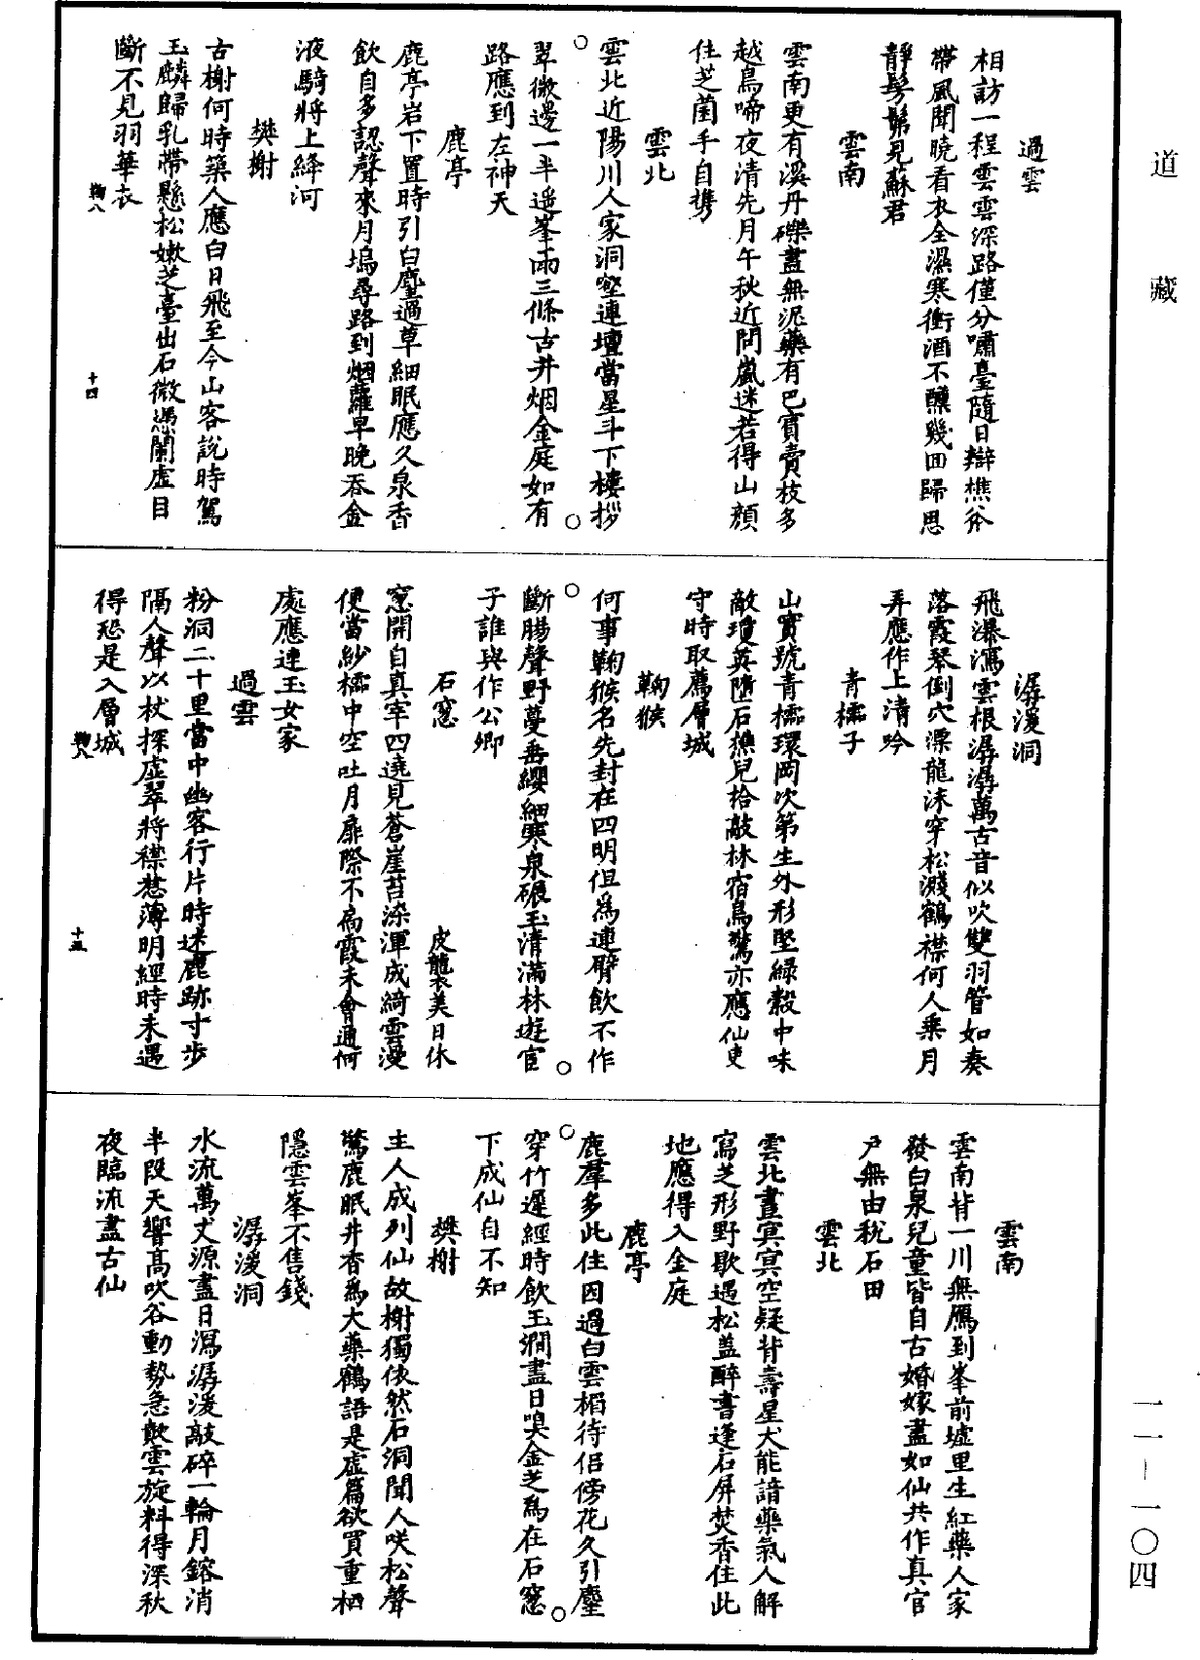 道藏
過雲
相訪一程雲雲深路僅分嘯臺隨日辯樵斧
帶風聞曉看衣全濕寒衝酒不醺幾回歸思
靜髣髴見蘇君
雲南
雲南更有溪丹礫盡無泥藥有巴賨賣枝多
越鳥啼夜清先月午秋近問嵐迷若得山顏
住芝菌手自攜
雲北
雲北近陽川人家洞壑連壇當星斗下樓拶
翠微邊一半遥峯雨三條古井烟金庭如有
路應到左神天
鹿亭
鹿亭岩下置時引白麞過草細眠應久泉香
飲自多認聲來月塢尋路到烟蘿早晚吞金
液騎將上絳河
樊榭
古榭何時築人應白日飛至今山客說時駕
玉麟歸乳蔕懸松嫰芝臺出石微憑闌虛目
斷不見羽華衣
鞠八
十四
潺湲洞
飛瀑瀉雲根潺潺萬古音似吹雙羽管如奏
落霞琴倒穴漂龍沫穿松濺鶴襟何人乗月
弄應作上清吟
青櫺子
山實號青櫺環岡次第生外形堅綠殼中味
敵瓊英墮石樵兒拾敲林宿鳥驚亦應仙吏
守時取薦層城
鞠猴
何事鞠猴名先封在四明但為連臂飲不作
斷腸聲野蔓垂纓細寒泉碾玉清滿林遊宦
子誰與作公卿
石窻
皮襲美日休
窻開自真宰四遶見蒼崖苔染渾成綺雲漫
便當紗櫺中空吐月扉際不扃霞未會通何
處應連玉女家
過雲
粉洞二十里當中幽客行片時迷鹿跡寸步
隔人聲以杖探虛翠將襟惹薄明經時未遇
得恐是入層城
鞠八
十五
雲南
雲南背一川無鴈到峯前墟里生紅藥人家
發白泉兒童皆自古婚嫁盡如仙共作真官
戶無由稅石田
雲北
雲北晝冥冥空疑背壽星犬能諳藥氣人解
寫芝形野歇遇松盖醉書逢石屏焚香住此
地應得入金庭
鹿亭
鹿羣多此住因過白雲楣待侣傍花久引麞
穿竹遲經時飲玉澗盡日嗅金芝為在石窻
下成仙自不知
樊榭
主人成列仙故榭獨依然石洞聞人咲松聲
驚鹿眠井香為大藥鶴語是虛篇欲買重栖
隱雲峯不售錢
潺湲洞
水流萬丈源盡日瀉潺湲敲碎一輪月鎔消
半段天響高吹谷動勢急歕雲旋料得深秋
夜臨流盡古仙
一一－一〇四